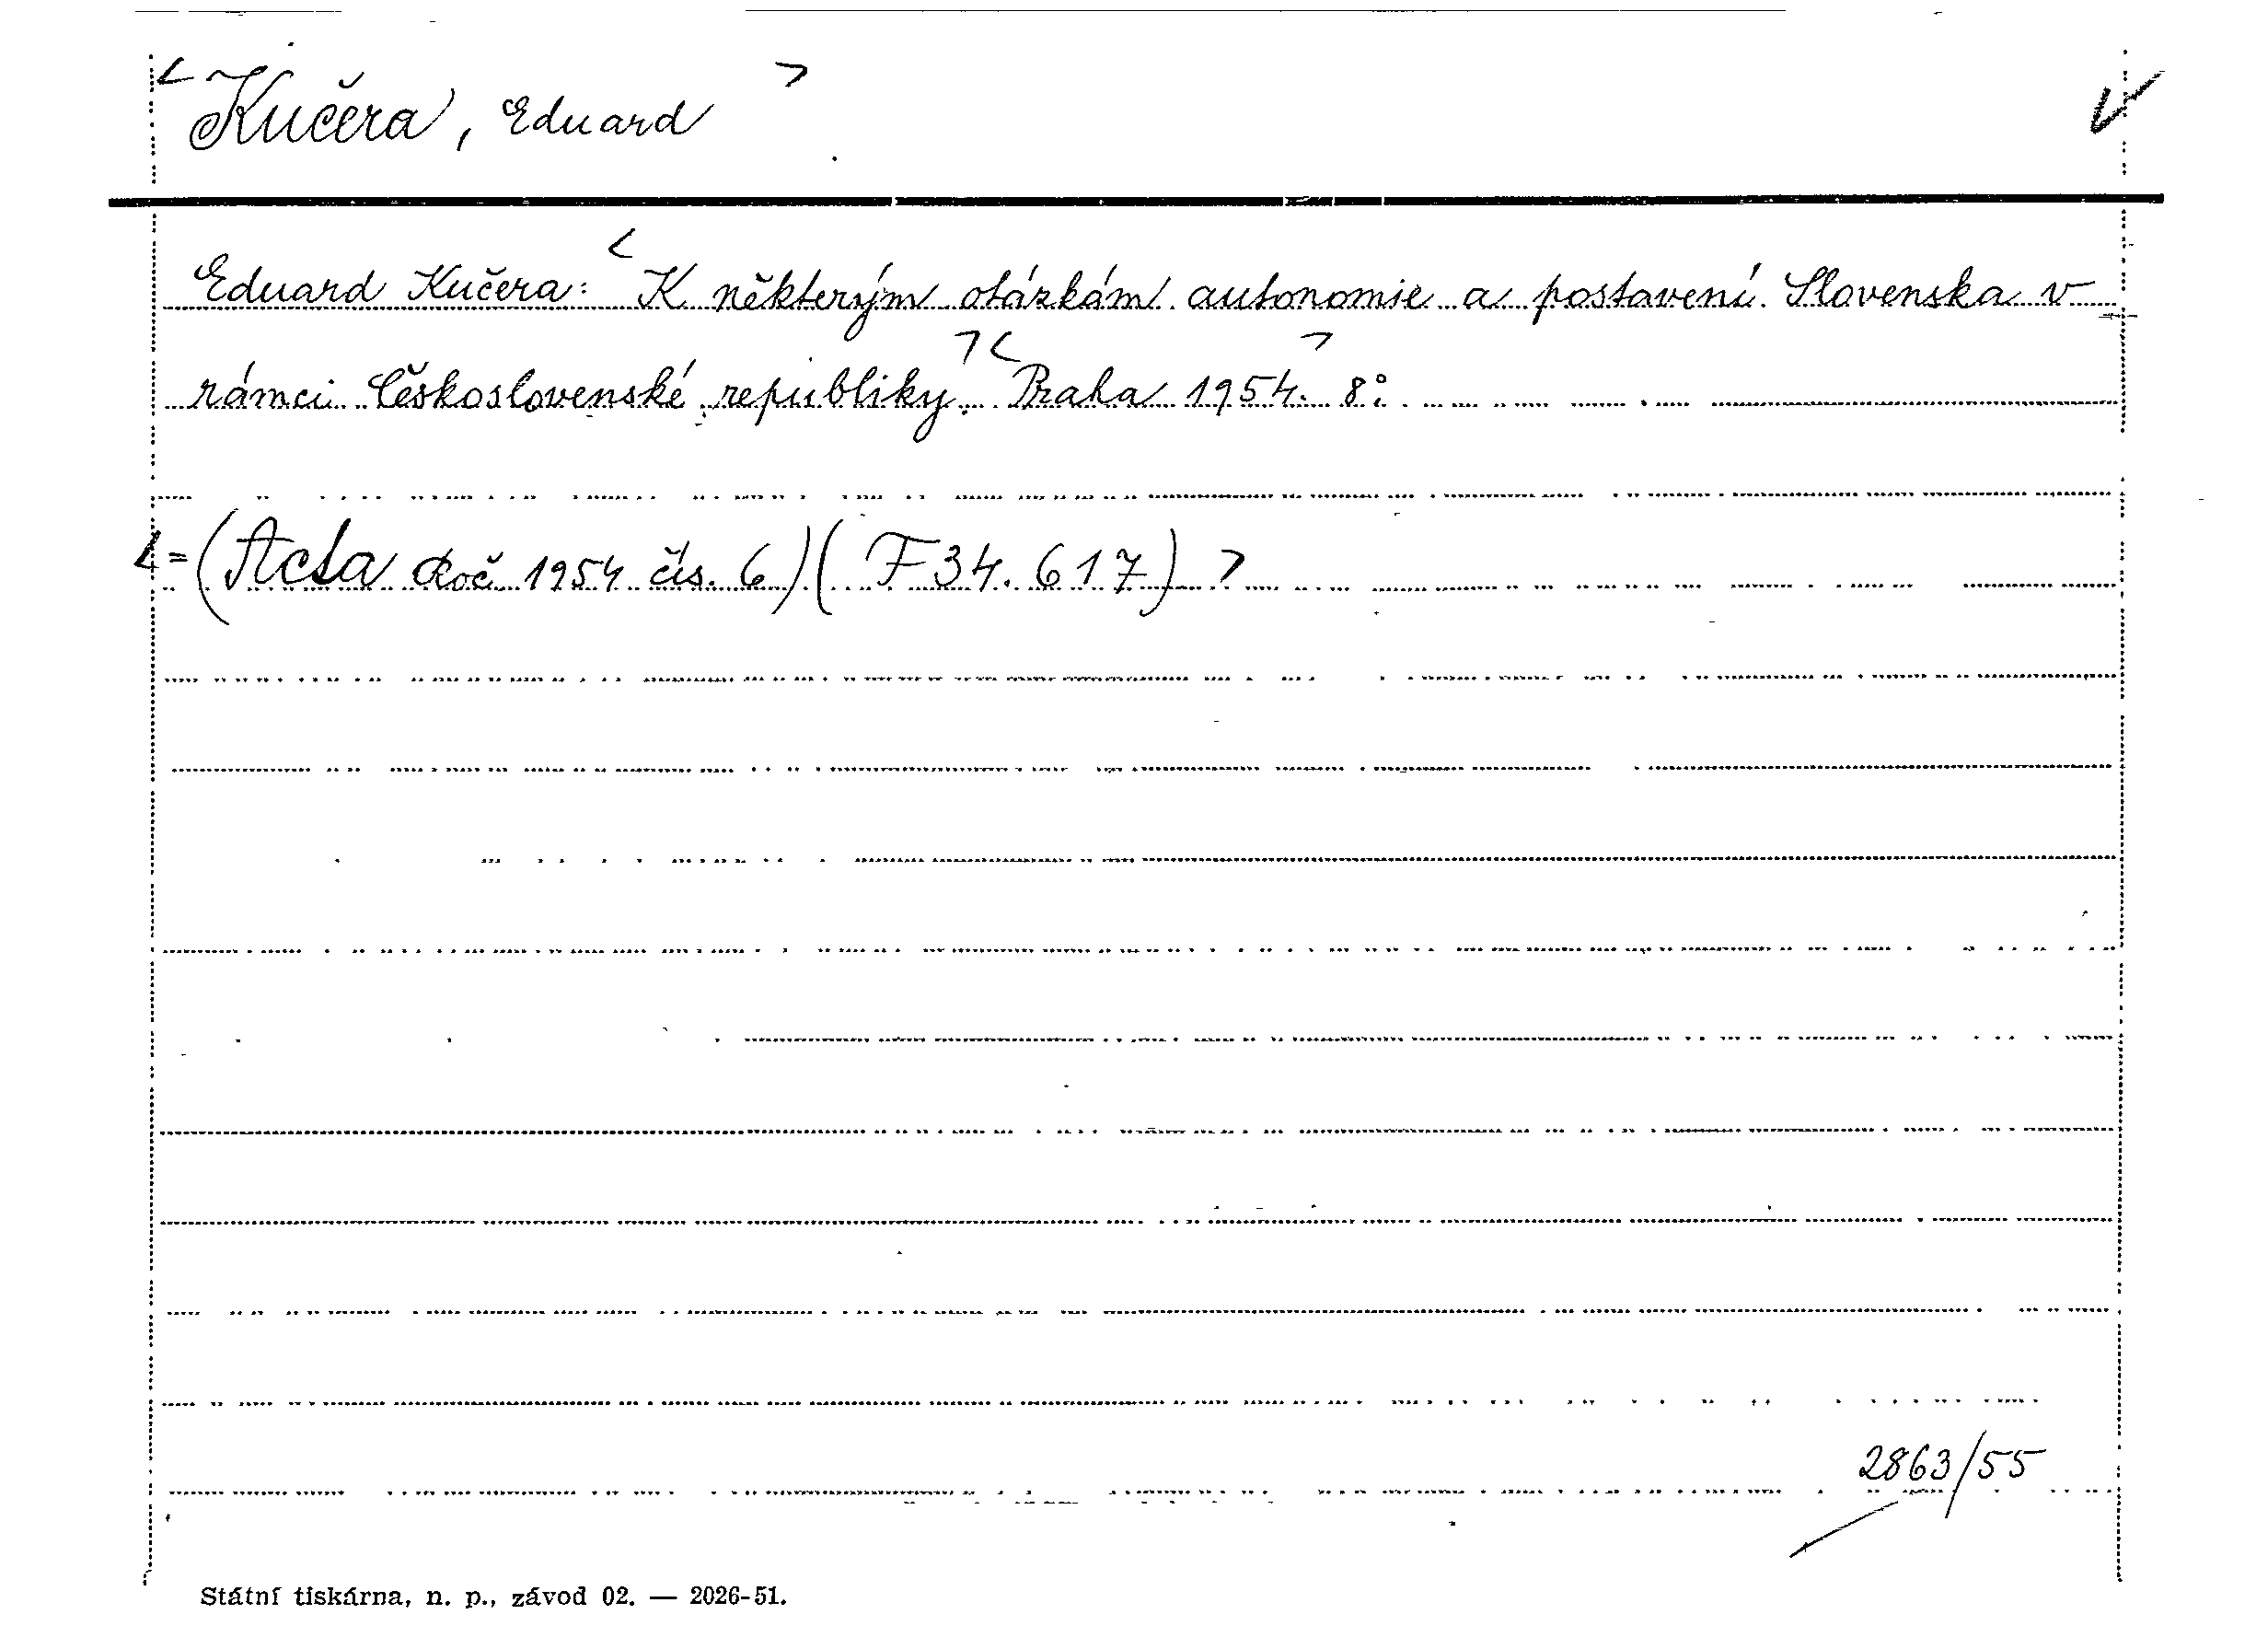 < Kučera, Eduard >
Eduard Kučera: < K některým otázkám autonomie a postavení Slovenska v
rámci Československé republiky. > < Praha 1954. > 8°.
< = (Acta Roč. 1954 čís. 6) (F 34.617) >
2863/55
Státní tiskárna, n. p., závod 02. — 2026-51.